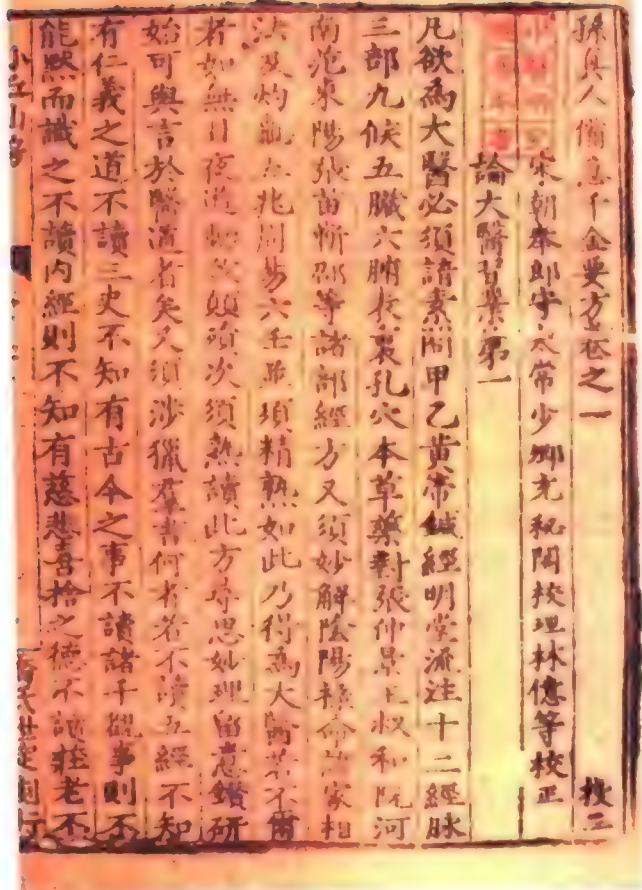 孫真人備急千金要方卷之一 校正
宋朝奉郎守太常少卿充秘閣校理林億等校正
論大醫習業第一
凡欲為大醫必須諳素問甲乙黃帝鍼經明堂流注十二經脉
三部九候五臟六腑表裏孔穴本草藥對張仲景王叔和阮河
南范東陽張苗靳邵等諸部經方又須妙解陰陽祿命諸家相
法及灼龜五兆周易六壬並須精熟如此乃得為大醫若不爾
者如無目夜遊動致顛殞次須熟讀此方尋思妙理留意鑽研
始可與言於醫道者矣又須涉獵羣書何者若不讀五經不知
有仁義之道不讀三史不知有古今之事不讀諸子覩事則不
能默而識之不讀內經則不知有慈悲喜捨之德不讀莊老不